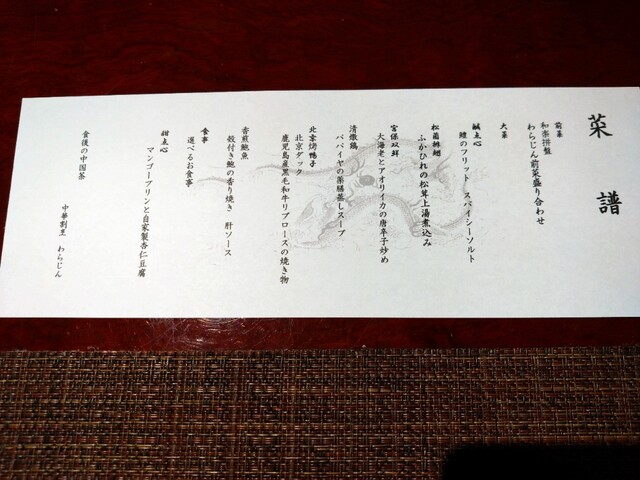 菜譜
前菜
和楽拼盤
わらじん前菜盛り合わせ
大菜
鹹点心
鱧のフリット スパイシーソルト
松茸排翅
ふかひれの松茸上湯煮込み
宮保双鮮
大海老とアオリイカの唐辛子炒め
清燉鶏
パパイヤの薬膳蒸しスープ
北京烤鴨子
北京ダック
鹿児島産黒毛和牛リブロースの焼き物
香煎鮑魚
殻付き鮑の香り焼き 肝ソース
食事
選べるお食事
甜点心
マンゴープリンと自家製杏仁豆腐
食後の中国茶
中華割烹 わらじん